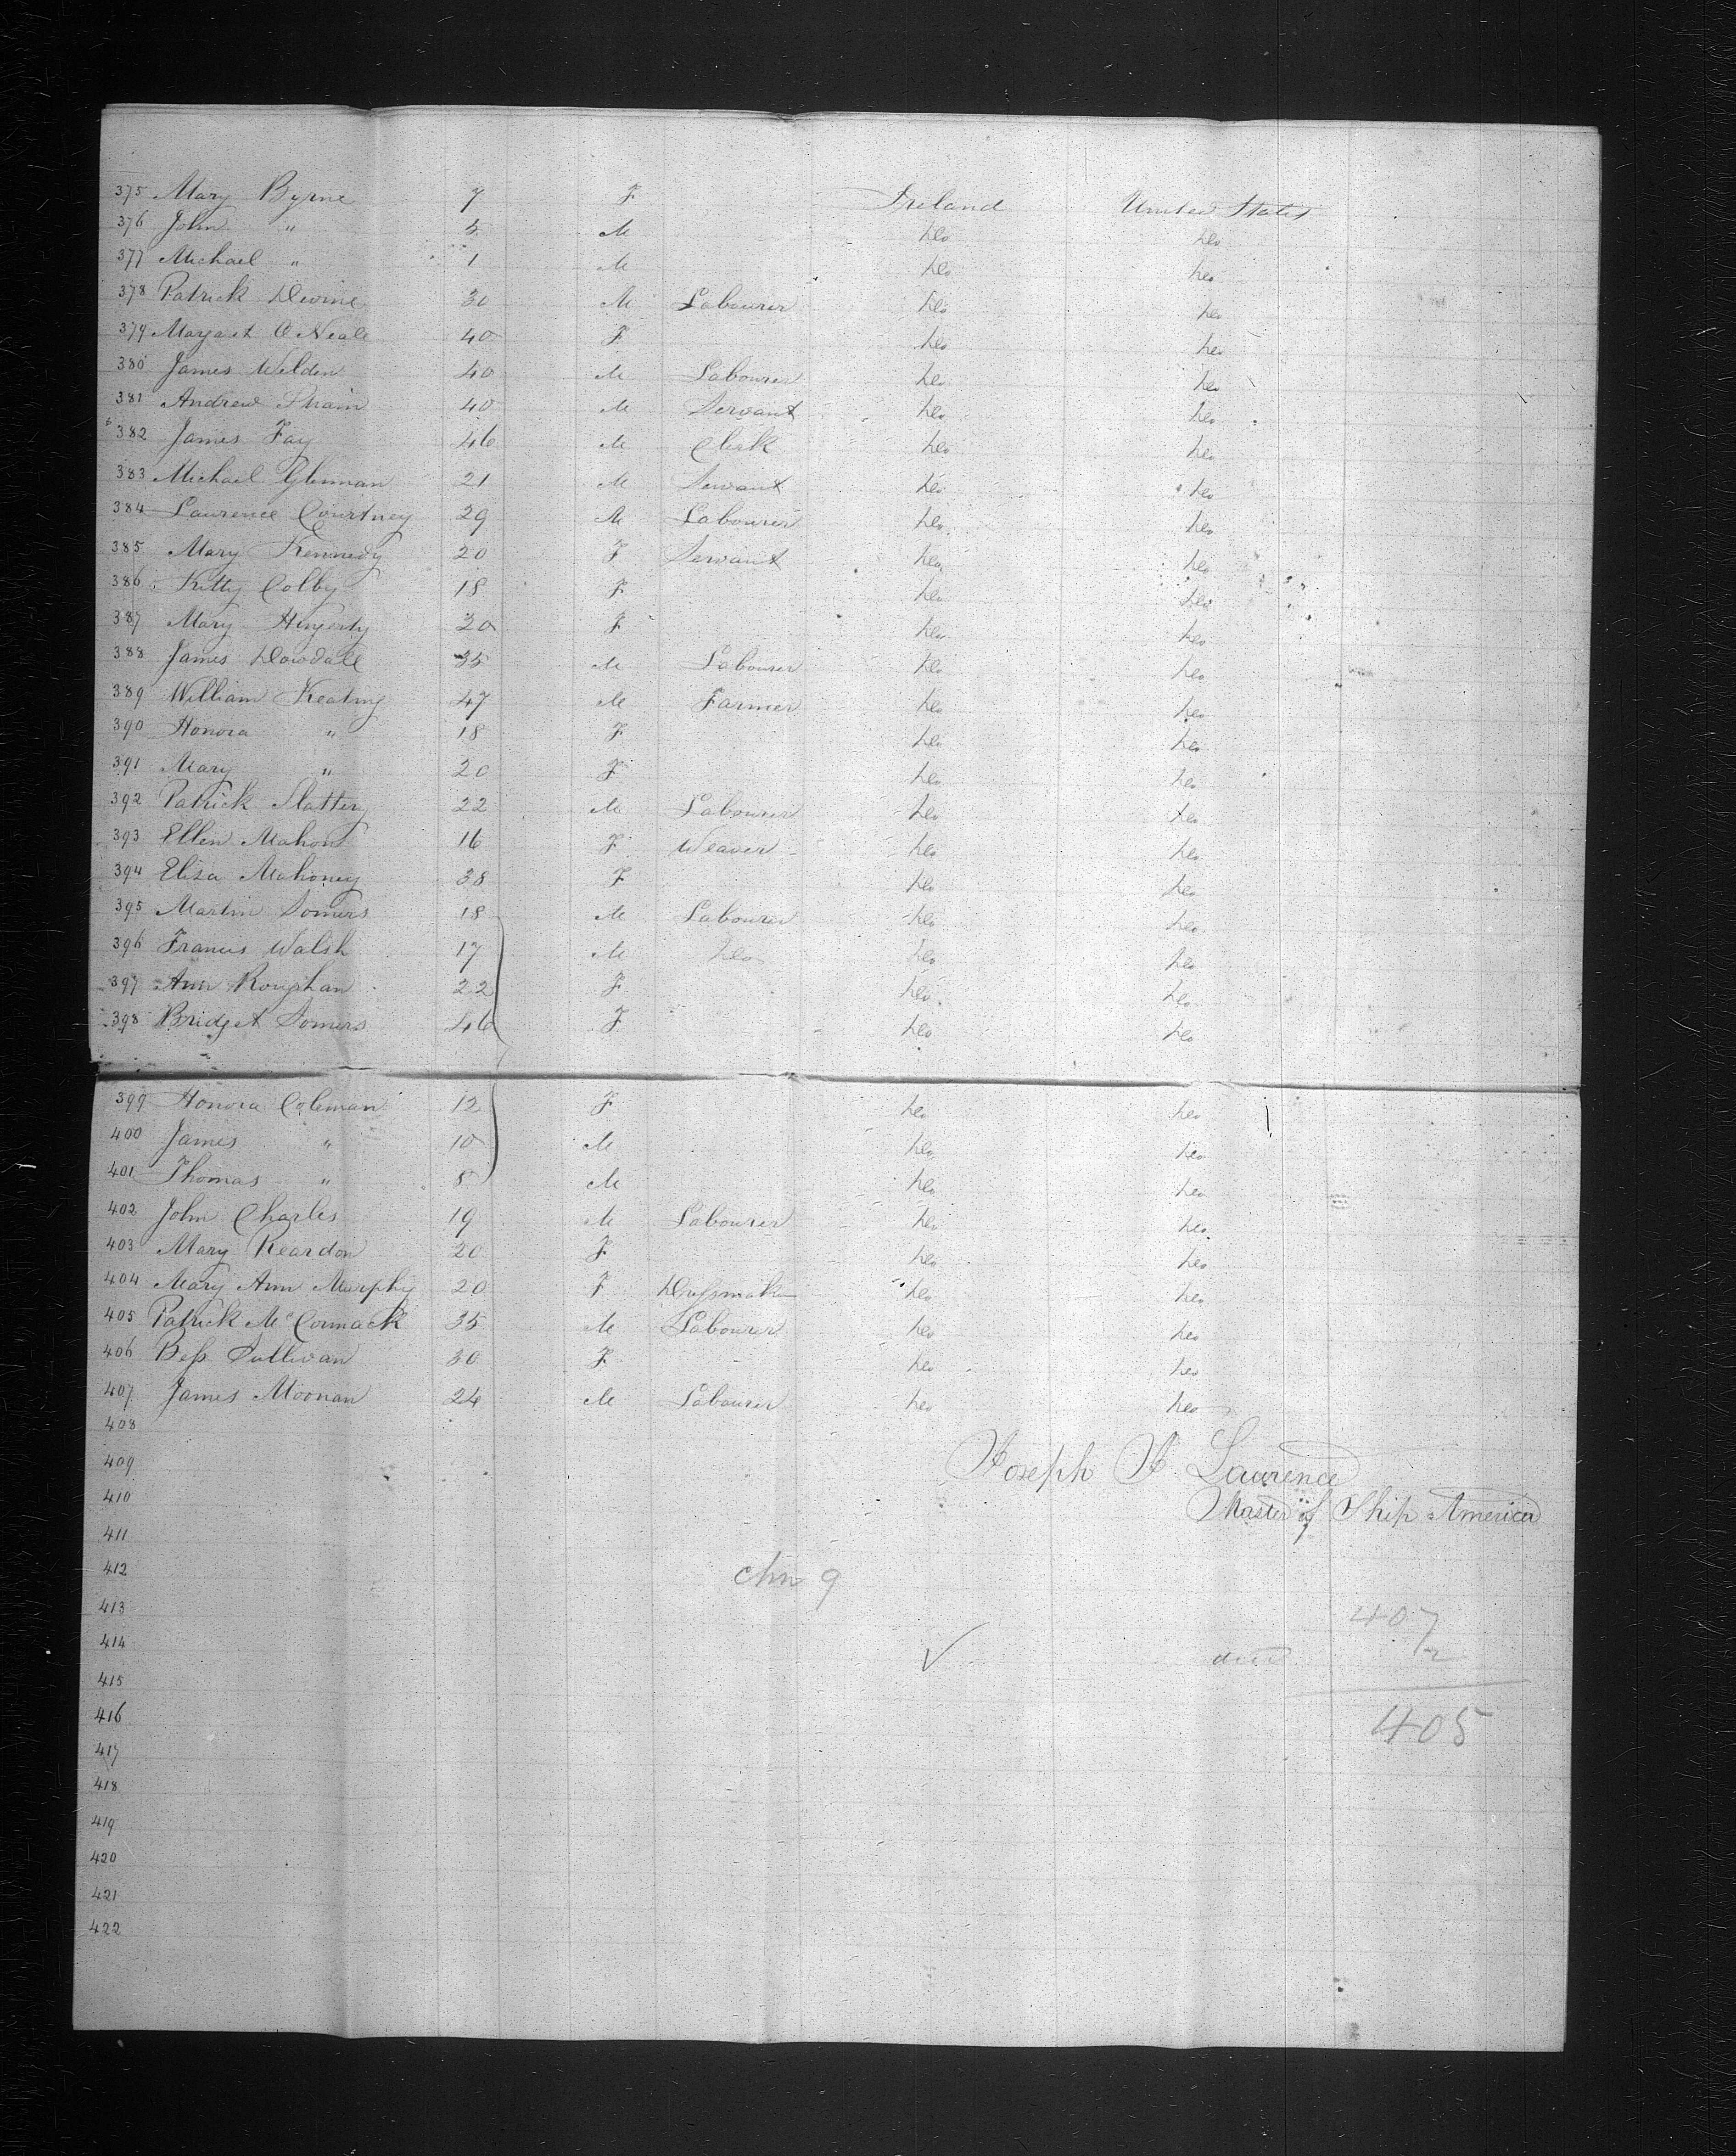 375 Mary Byrne 7 F Ireland United States
376 John " 5 M Do Do
377 Michael " 1 M Do Do
378 Patrick Devine 30 M Labourer Do Do
379 Margaret O Neale 40 F Do Do
380 James Welden 40 M Labourer Do Do
381 Andrew 40 M Servant Do Do
382 James Fay 46 M Clerk Do Do
383 Michael Glennan 21 M Servant Do Do
384 Laurence Courtney 29 M Labourer Do Do
385 Mary Kennedy 20 F Servant Do Do
386 Kitty Colby 18 F Do Do
387 Mary Hegerty 20 F Do Do
388 James Dowdall 35 M Labourer Do Do
389 William Keating 47 M Farmer Do Do
390 Honora " 18 F Do Do
391 Mary " 20 F Do Do
392 Patrick Slattery 22 M Labourer Do Do
393 Ellen Mahon 16 F Weaver Do Do
394 Eliza Mahoney 38 F Do Do
395 Martin Somers 18 M Labourer Do Do
396 Francis Walsh 17 M Do Do Do
397 Ann Roughan 22 F Do Do
398 Bridget Somers 46 F Do Do
399 Honora Coleman 12 F Do Do
400 James " 10 M Do Do
401 Thomas " 8 M Do Do
402 John Charles 19 M Labourer Do Do
403 Mary Reardon 20 F Do Do
404 Mary Ann Murphy 20 F Dressmaker Do Do
405 Patrick McCormack 35 M Labourer Do Do
406 Bess Sullivan 30 F Do Do
407 James Moonan 24 M Labourer Do Do
408
409 Joseph A. Laurence
410 Master of Ship America
411
412 9
413 407
414 died 2
415
416 405
417
418
419
420
421
422